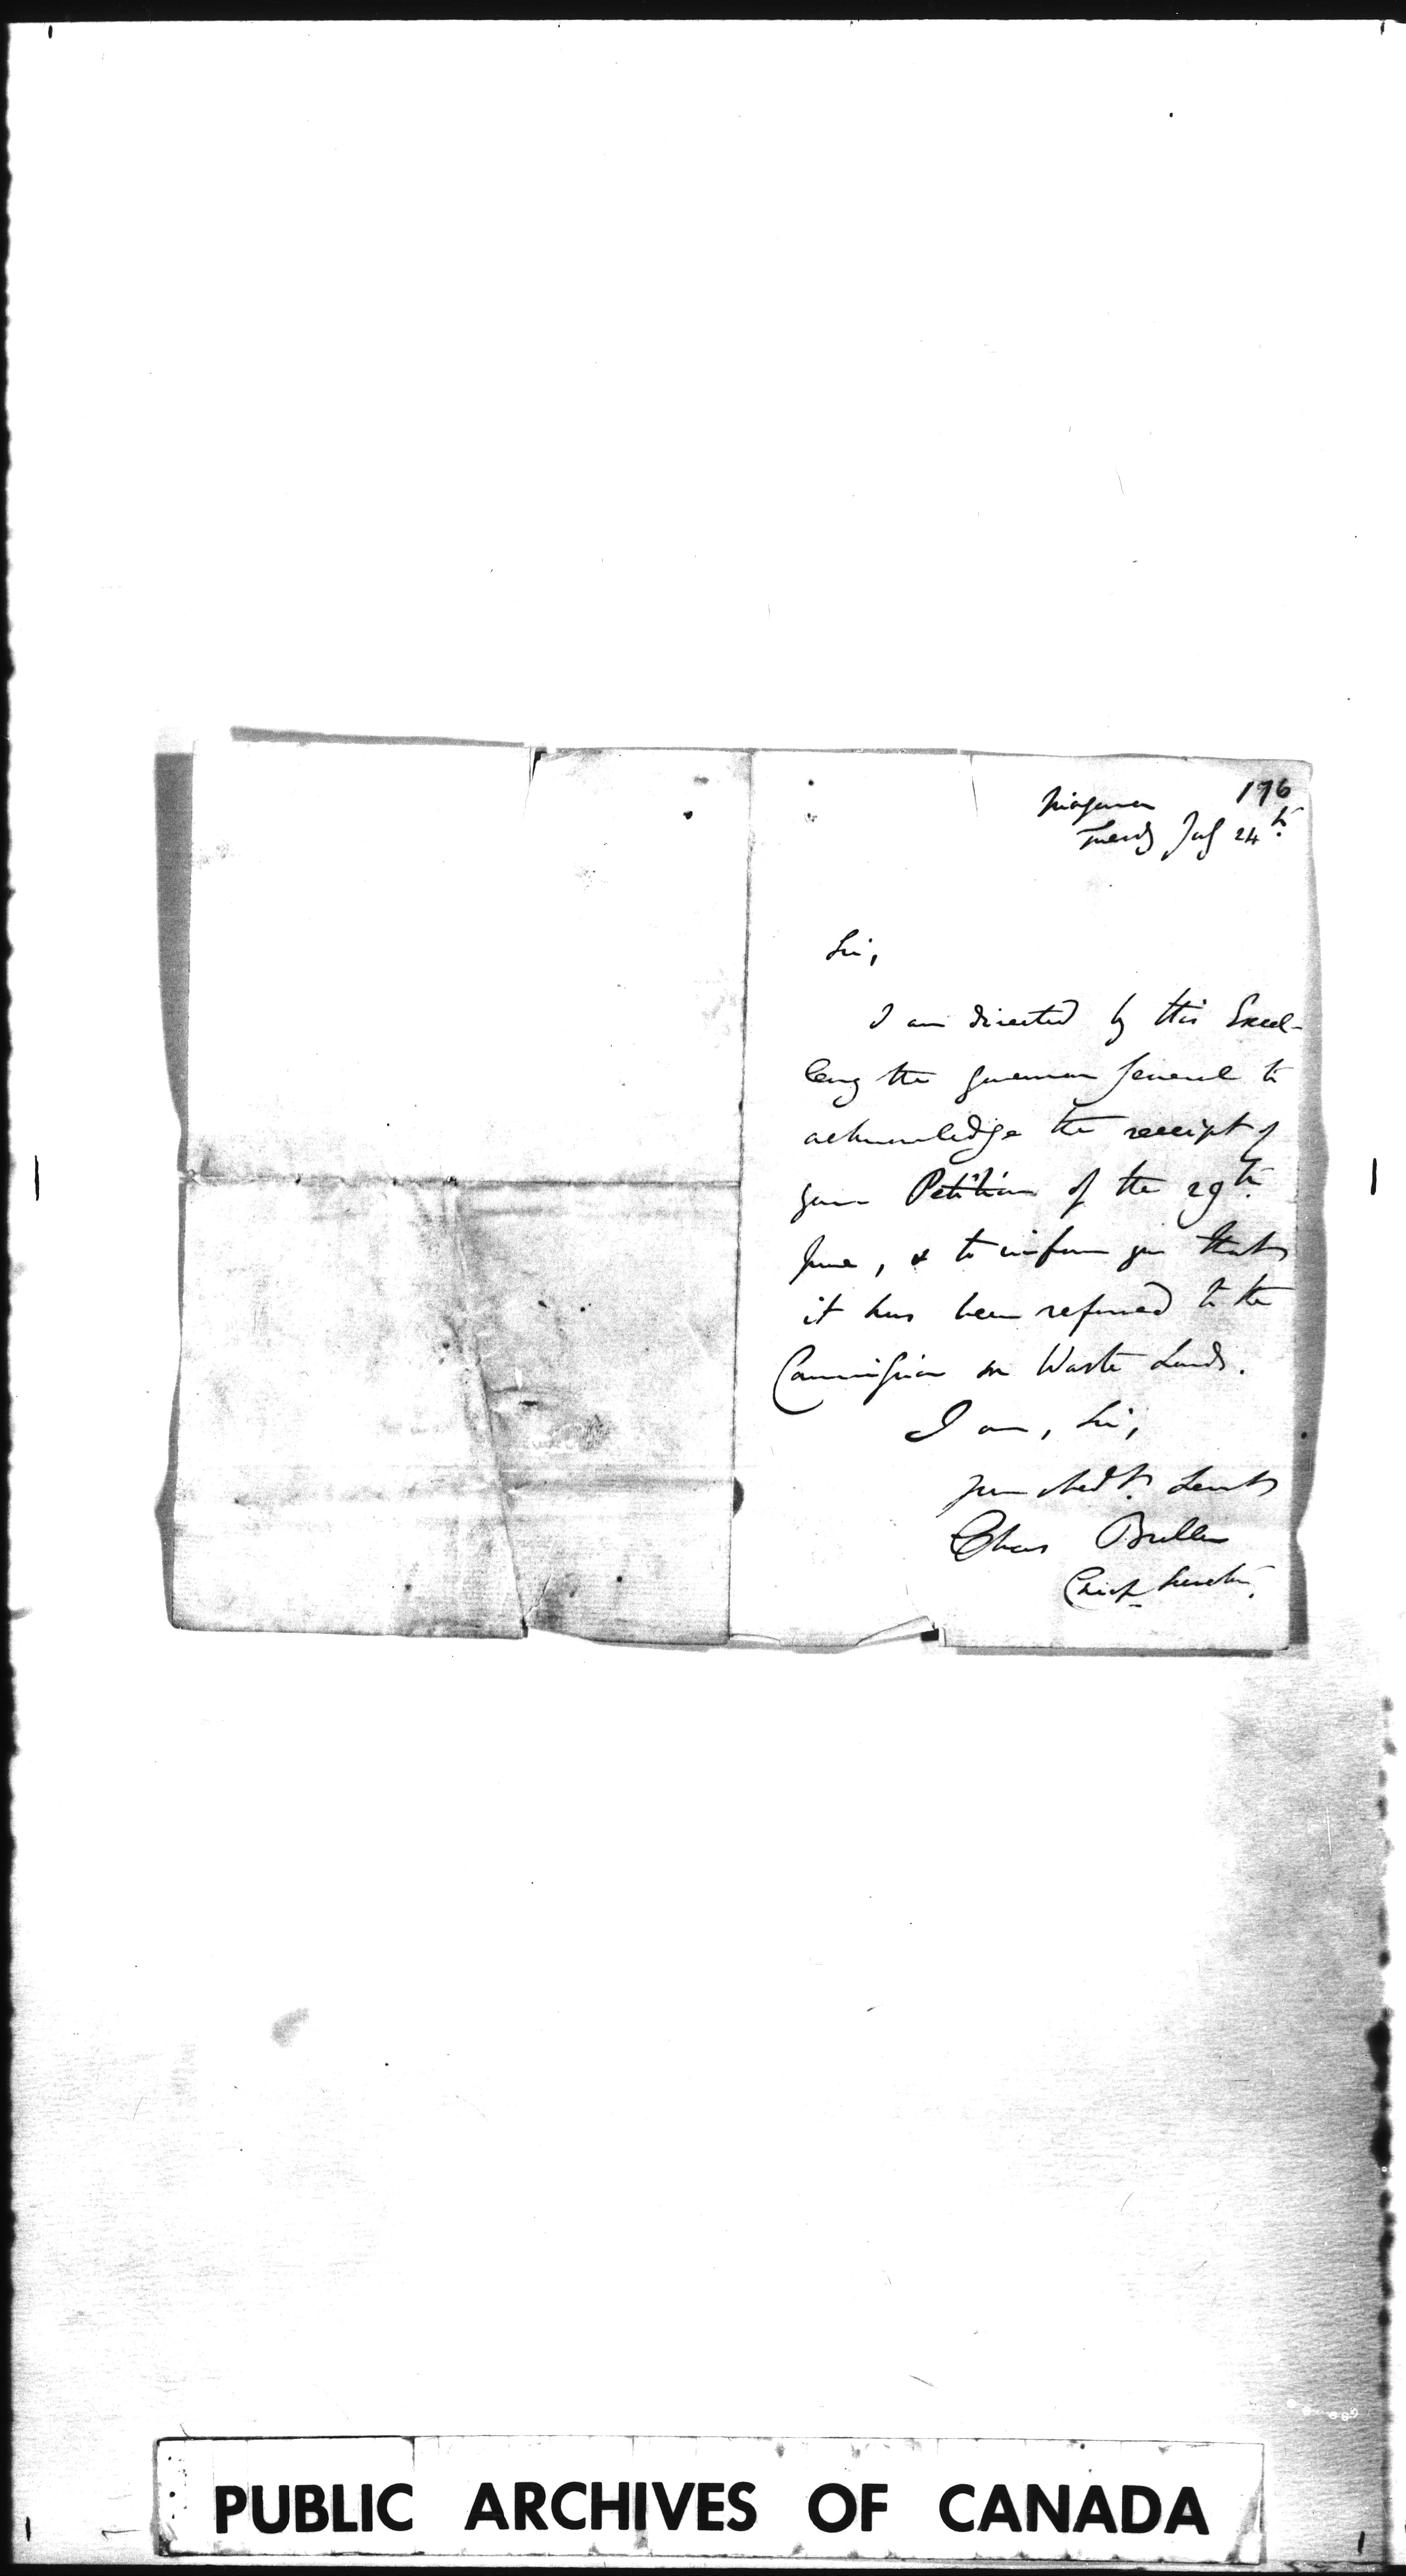 176
Niagara
Tuesdy July 24th.
Sir,
I am directed by His Excel-
lency the Governor General to
acknowledge the receipt of
your Petition of the 29th.
June, & to inform you that
it has been referred to the
Commission on Waste Lands.
I am, Sir,
Your obedt. Servt
Chas Buller
Chief Secretary.
PUBLIC ARCHIVES OF CANADA